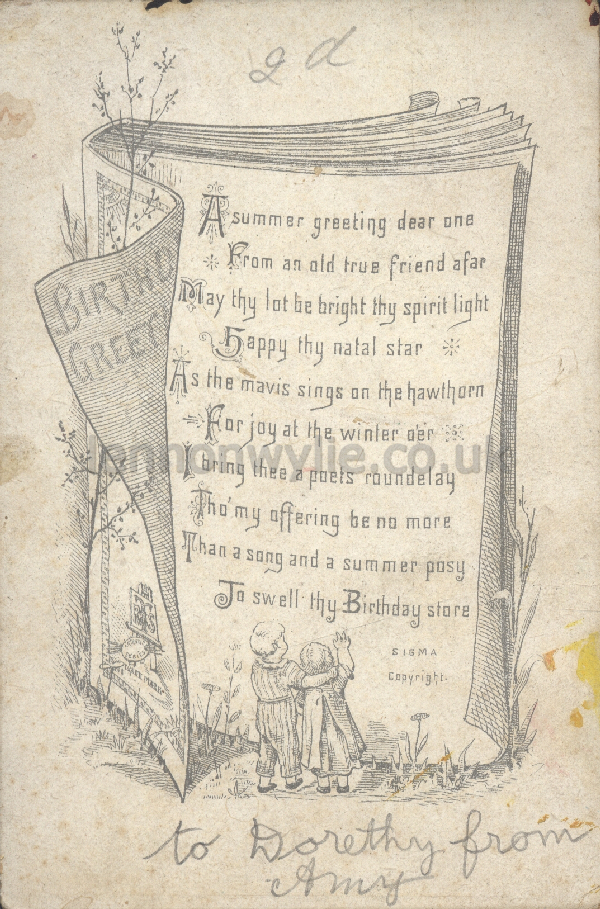 2d
A summer greeting dear one
From an old true friend afar
May thy lot be bright thy spirit light
Happy thy natal star
As the mavis sings on the hawthorn
For joy at the winter o'er
I bring thee a poets roundelay
Tho' my offering be no more
Than a song and a summer posy
To swell thy Birthday store
SIGMA
Copyright.
BIRTHD
GREET
THE
TRADE MARK
lennonwylie.co.uk
to Dorethy from
Amy